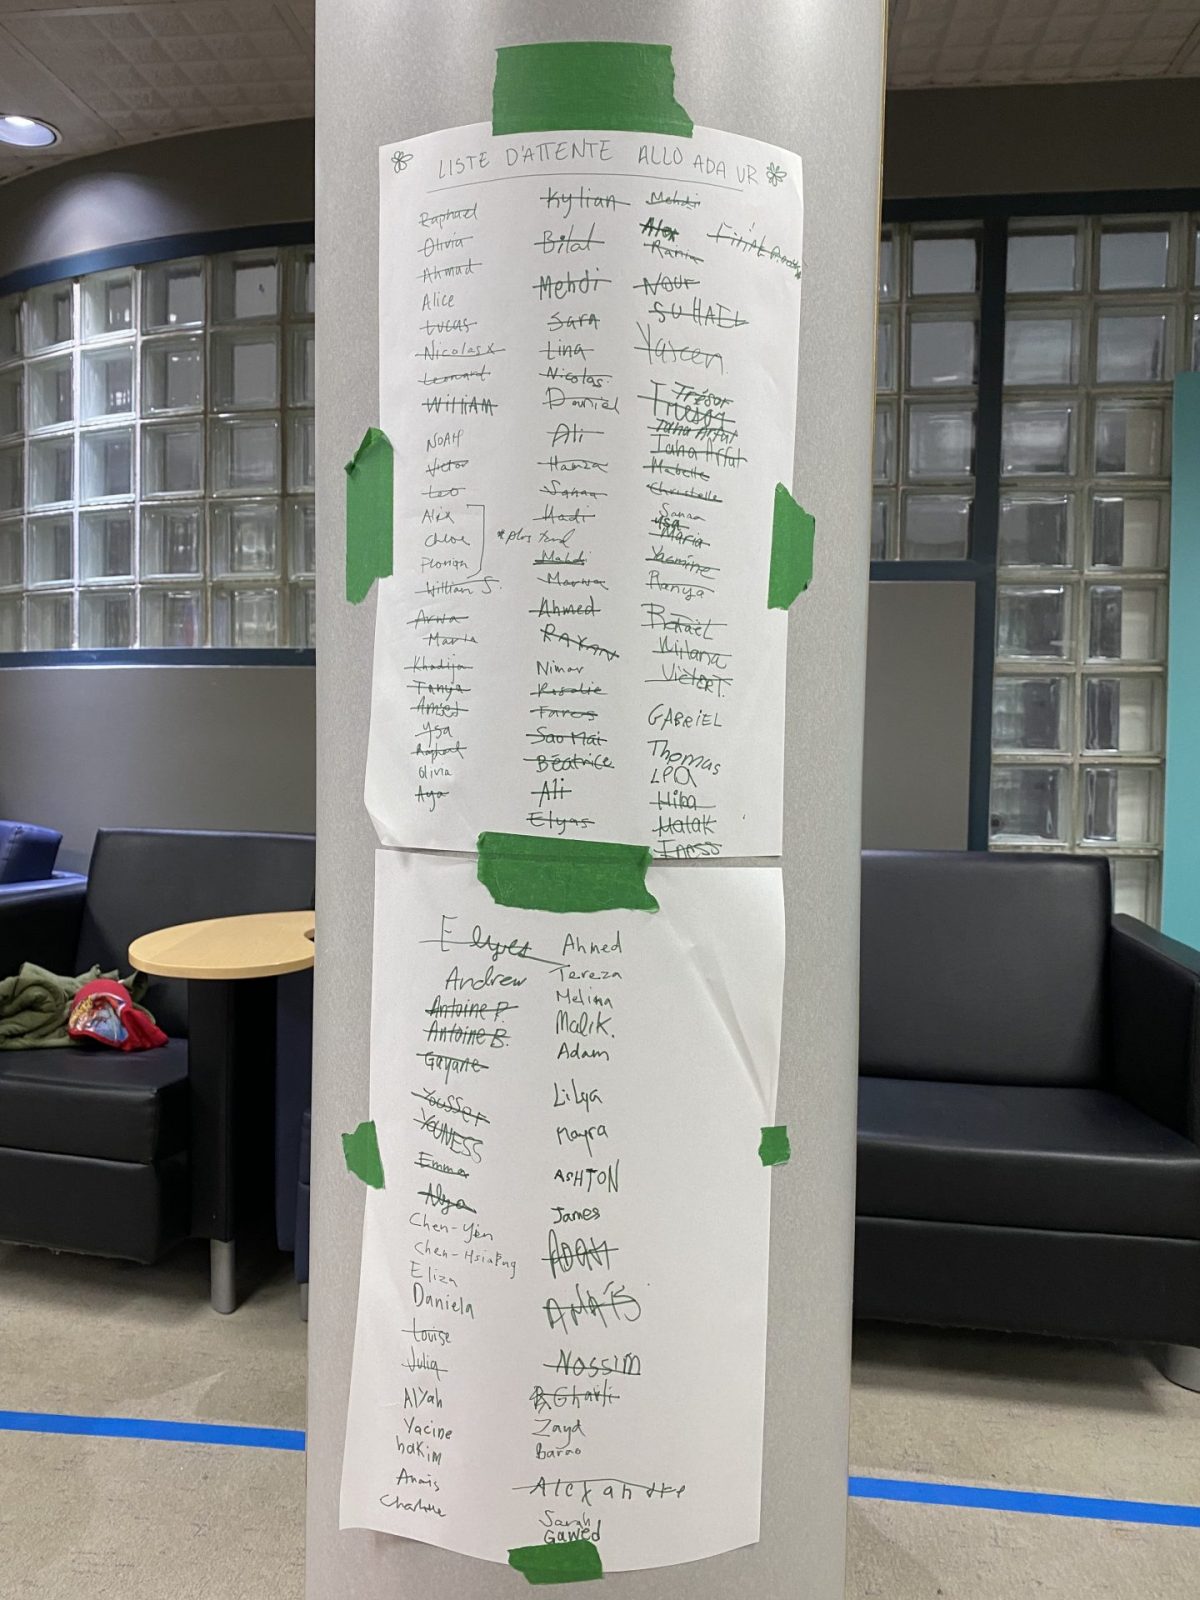 LISTE D'ATTENTE ALLO ADA VR
Raphael
Olivia
Ahmad
Alice
Lucas
Nicolas x
Leonard
WILLIAM
NOAH
Victor
Leo
Alix
Chloe
Florian
*plus tard
William S.
Arwa
Maria
Khadija
Tanya
Ysa
Raphael
Olivia
Aya
Kylian
Bilal
Mehdi
Sara
Lina
Nicolas
Daniel
Ali
Hamza
Sanaa
Hadi
Mahdi
Marwa
Ahmed
RAYAN
Nimar
Rosalie
Fares
Sao Mai
Béatrice
Ali
Elyas
Mehdi
Alex
Rania
NOUR
SUHAEL
Yascen
Trésor
Taha Afful
Taha Afful
Mabelle
Christelle
Sanaa
Ysa
Maria
Yasmine
Ranya
Rafaël
Milana
Victor T.
GABRIEL
Thomas
LPQ
Hiba
Malak
Iness
Elyes
Andrew
Antoine P.
Antoine B.
Gayane
Youssef
YOUNESS
Emma
Alya
Chen-Yen
Eliza
Daniela
Louise
Julia
Alyah
Yacine
hakim
Anaïs
Charlotte
Ahmed
Tereza
Melina
Malik.
Adam
Lilya
Mayra
ASHTON
James
ANAÏS
NOSSIM
Gharli
Zayd
Barao
Alexandre
Sarah
Gawed